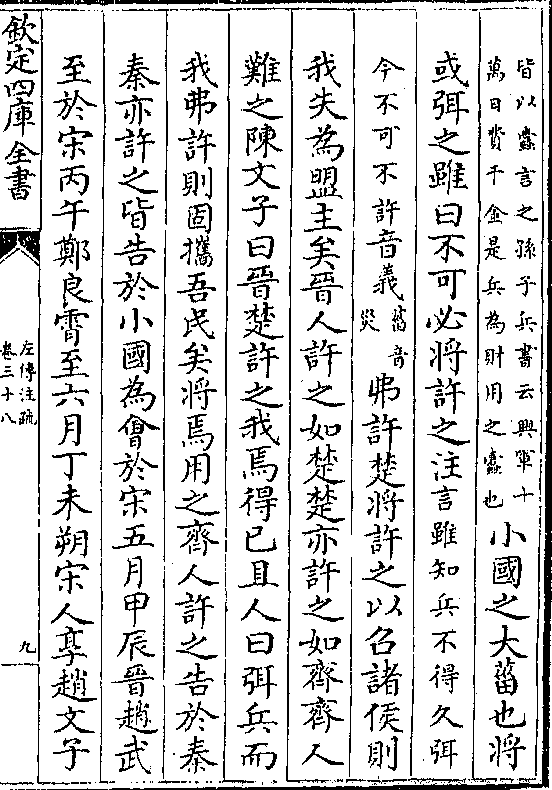 皆以蠹言之孫子兵書云興軍十
萬日費千金是兵為財用之蠹也
小國之大菑也將
或弭之雖曰不可必將許之注言雖知兵不得久弭
今不可不許音義菑音
災
弗許楚將許之以召諸侯則
我失為盟主矣晉人許之如楚楚亦許之如齊齊人
難之陳文子曰晉楚許之我焉得已且人曰弭兵而
我弗許則固攜吾民矣將焉用之齊人許之告於秦
秦亦許之皆告於小國為會於宋五月甲辰晉趙武
至於宋丙午鄭良霄至六月丁未朔宋人享趙文子
欽定四庫全書
左傳注疏
卷三十八
九